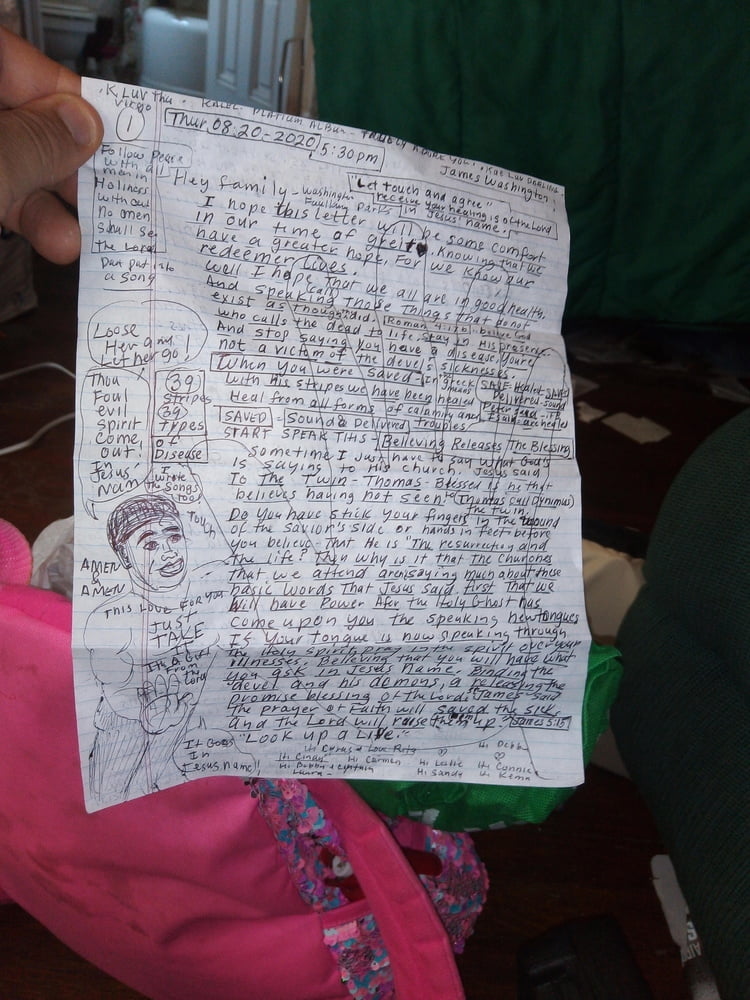 K Luv tha
Virgo
1
Thur, 08-20-2020, 5:30pm
James Washington
"Let touch and agree"
receive your healing is of the Lord
in Jesus' name.
Follow peace
with all
men in
Holiness
without
no men
shall se
the Lord
a song
Hey family - Washington
Faulkin Parks
I hope this letter will be some comfort
in our time of greif. Knowing that we
have a greater hope. For we know our
redeemer Lives.
Well I hope that we all are in good health.
And speaking those Things that do not
exist as though
who calls the dead to life. stay in His presence
And stop saying you have a disease. youre
not a victim of the devel's sicknesses.
When you were saved - In Greek
with his stripes we have been healed
Heal from all forms of calamity and
SAVED - Sound & Delivered troubles
START SPEAK THIS - Believing Releases The Blessing
Loose
Her and
Let her go!
Thou
Foul
evil
spirit
come
out!
In
Jesus'
Nam
39
stripes
39
types
of
Disease
I
wrote
the songs
too
Touch
Sometime I Just have to say what God's
is saying to His church, Jesus said
To The Twin - Thomas - Blessed is he that
believes having not seen. (Thomas call Dynimus)
the twin
Do you have stick your fingers in the wound
of the savior's side or hands in feet before
you believe - That He is "The resurrection and
The life? Then why is it that The Churches
that we attend aren saying much about these
basic words That Jesus said first That we
Will have Power After the Holy Ghost has
come upon you the speaking new tongues
If Your tongue is now speaking through
The Holy spirit pray in the spirit over your
illnesses. Believing that you will have what
you ask in Jeses Nam e. Binding the
devel and his demons, a releasing the
promise blessing of the Lord. James said
The prayer of Faith will saved the sick
and the Lord will raise them up? James 5:15
"Look up a Live."
AMEN
&
AMEN
THIS LOVE FOR YOU
JUST
TAKE
It
It's A Gift
From
the
Lord
It Goes
In
Jesus name!!
Hi Cyrus & Love
Hi Debb
Hi Cindy
Hi Carmen
Hi Leslie
Hi Connie
Hi Bobby &
Hi Sandy
Hi Kema
Laura